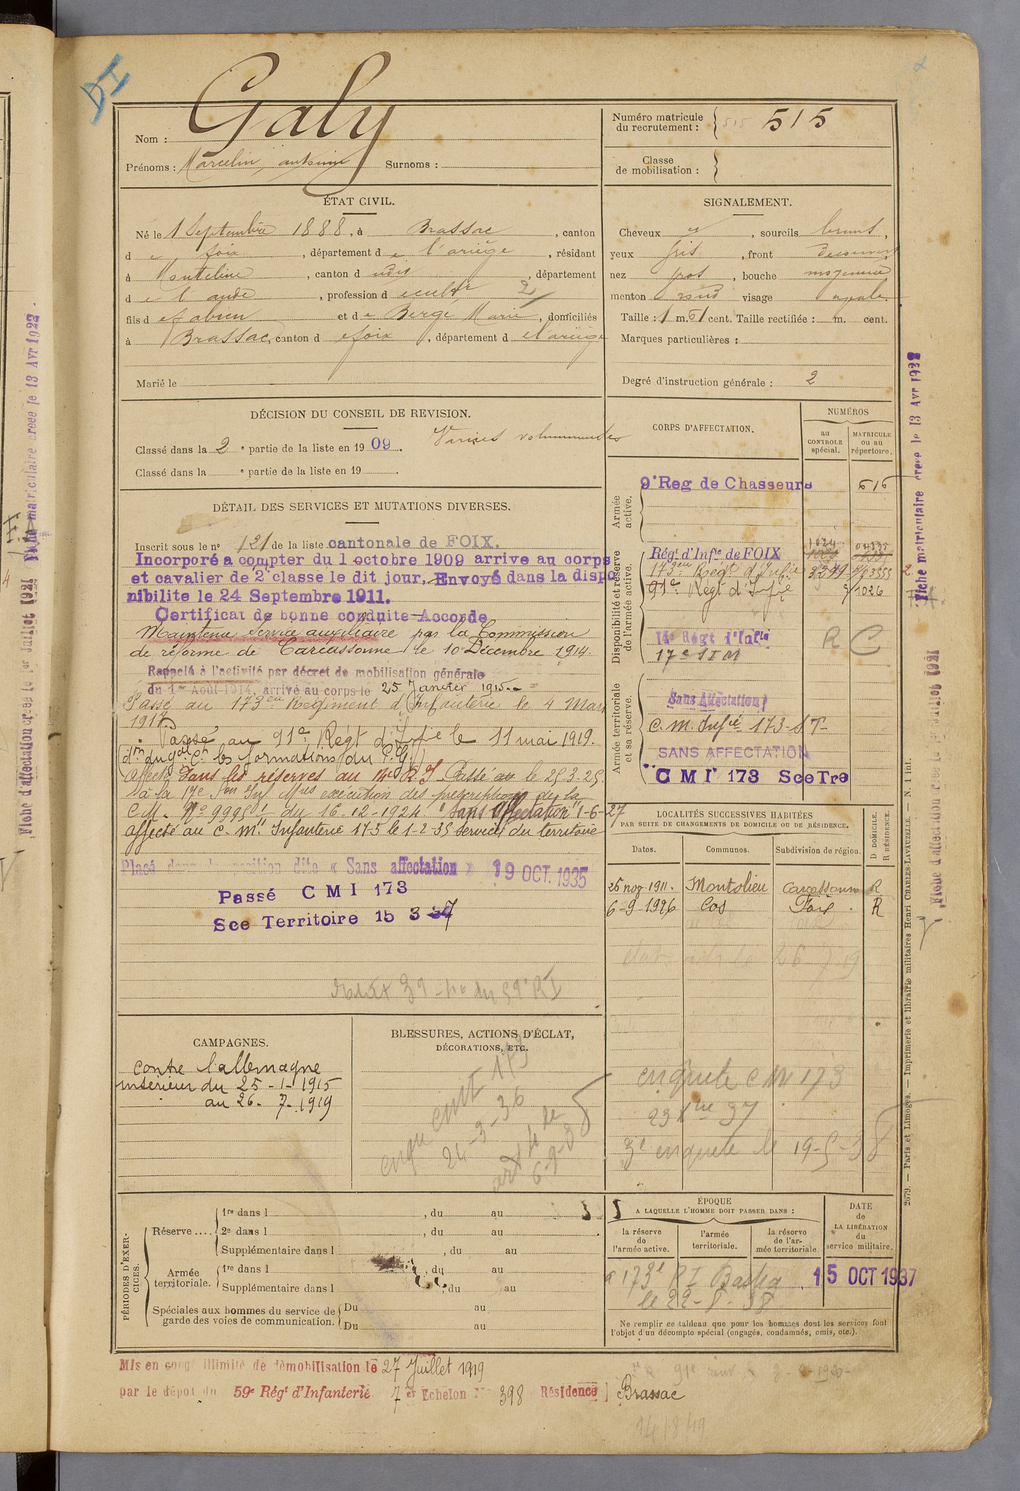 DI
Nom : Galy
Prénoms : Marcelin, antoine Surnoms :
Numéro matricule du recrutement : 515
Classe de mobilisation :
ÉTAT CIVIL.
Né le 1 Septembre 1888, à Brassac, canton
de foix, département de l'ariège, résidant
à Montolieu, canton d udis, département
de l'aude, profession de cultr 2
fils de fabien et de Berge Marie, domiciliés
à Brassac, canton de foix, département de l'ariège
Marié le
SIGNALEMENT.
Cheveux et, sourcils bruns,
yeux gris, front
nez gros, bouche moyenne
menton rond visage ovale
Taille : 1 m. 61 cent. Taille rectifiée : m. cent.
Marques particulières :
Degré d'instruction générale : 2
DÉCISION DU CONSEIL DE REVISION.
Classé dans la 2e partie de la liste en 1909. Varices volumineuses
Classé dans la e partie de la liste en 19
CORPS D'AFFECTATION.
NUMÉROS
au CONTROLE spécial.
MATRICULE ou au répertoire.
Armée active.
9e Reg de Chasseurs 616
Disponibilité et réserve de l'armée active.
Régt d'Infie de FOIX
173eme Regt d'Infie 3279
91e Regt d'Infie 1026
14e Régt d'Infie R C
17e S I M
Armée territoriale et sa réserve.
Sans Affectation
C. M. Infie 173 - S T -
SANS AFFECTATION
"C M I" 173 Sce Tre
DÉTAIL DES SERVICES ET MUTATIONS DIVERSES.
Inscrit sous le no 121 de la liste cantonale de FOIX.
Incorporé a compter du 1 octobre 1909 arrive au corps
et cavalier de 2e classe le dit jour. Envoyé dans la dispo
nibilite le 24 Septembre 1911.
Certificat de bonne conduite Accorde
Maintenu service auxiliaire par la Commission
de réforme de Carcassonne le 10 Décembre 1914.
Rappelé à l'activité par décret de mobilisation générale
du 1er Août 1914, arrivé au corps le 25 Janvier 1915.
Passé au 173eme Régiment d'Infanterie le 4 Mars
1917.
Passé au 91e Régt d'Infie le 11 mai 1919.
Affecté dans les réserves au 14e R I Passé au le 25-3-25
à la 17e Son Inf Mres exécution des prescriptions de la
C.M. No 9995 du 16-12-1924 "Sans Affectation" 1-6-27
affecté au C. M. Infanterie 173 le 1-2-35 Services du territoire
Placé dans la position dite « Sans affectation » 19 OCT. 1935
Passé C M I 173
Sce Territoire 15 3 37
LOCALITÉS SUCCESSIVES HABITÉES
PAR SUITE DE CHANGEMENTS DE DOMICILE OU DE RÉSIDENCE.
Dates. Communes. Subdivision de région. D DOMICILE. R RÉSIDENCE.
25 nov 1911. Montolieu Carcassonne R
6-9-1926 Cos Foix. R
26-7-19
CAMPAGNES.
Contre l'allemagne
intérieur du 25-1-1915
au 26-7-1919
BLESSURES, ACTIONS D'ÉCLAT,
DÉCORATIONS, ETC.
enquete cmt 173
24-3-36
art 4 de
6-9-38
enquete C M 173
3e enquete le 19-5-38
PÉRIODES D'EXERCICES.
Réserve....
1re dans l, du au
2e dans l, du au
Supplémentaire dans l, du au
Armée territoriale.
1re dans l, du au
Supplémentaire dans l, du au
Spéciales aux hommes du service de garde des voies de communication.
Du au
Du au
ÉPOQUE
A LAQUELLE L'HOMME DOIT PASSER DANS :
la réserve de l'armée active.
l'armée territoriale.
la réserve de l'armée territoriale.
DATE de LA LIBÉRATION du service militaire.
a 173e R I Bastia
le 22-8-38
15 OCT 1937
Ne remplir ce tableau que pour les hommes dont les services font
l'objet d'un décompte spécial (engagés, condamnés, omis, etc.).
Mis en congé illimité de démobilisation le 27 Juillet 1919
par le dépôt du 59e Régt d'Infanterie 7er Echelon No 398 Résidence Brassac
Fiche matriculaire créée le 13 Avr 1922
Fiche d'affectation créée le 1er Juillet 1921
2579. — Paris et Limoges. — Imprimerie et librairie militaires Henri CHARLES-LAVAUZELLE. — N. 1 int.